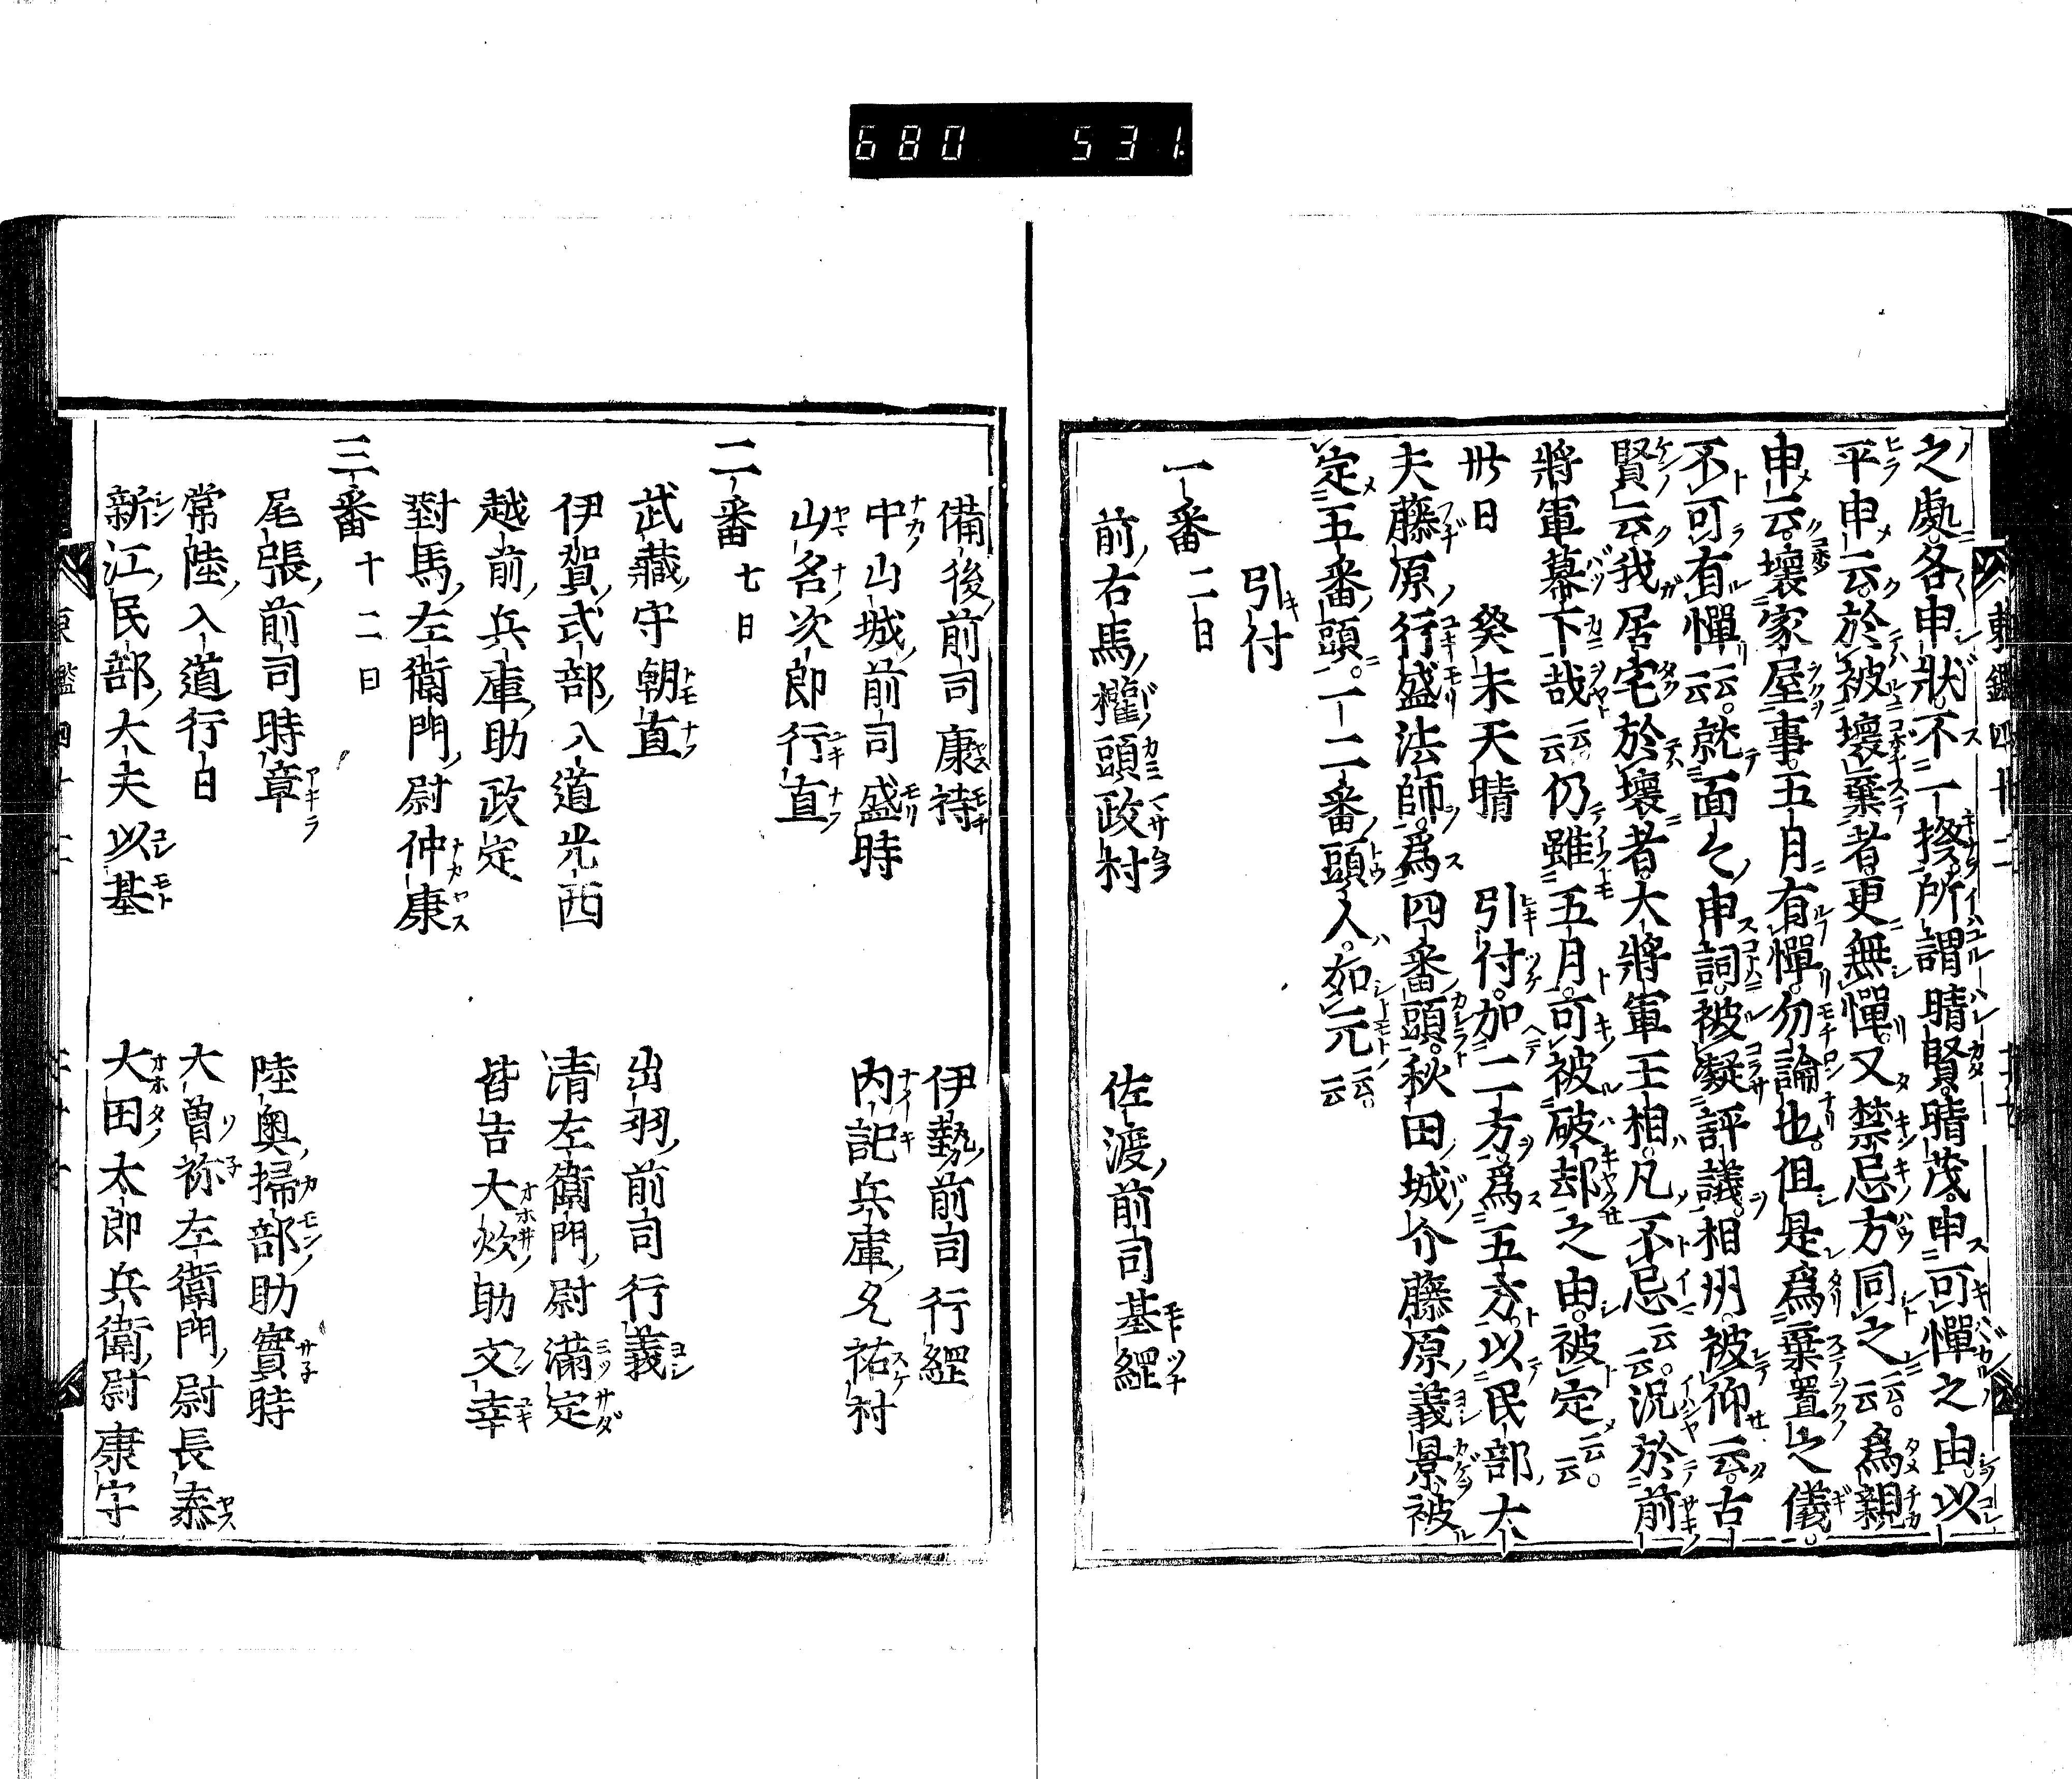 680 531.
之處各申狀不一揆所謂晴賢晴茂申可憚之由以
平申云於被壞棄者更無憚又禁忌方同之云云為親
申云壞家屋事五月有憚勿論也但是為棄置之儀
不可有憚云云就面々申詞被凝評議相州被仰云古
賢云我居宅於壞者大將軍王相凡不忌云云況於前
將軍幕下哉云云仍雖五月可被破却之由被定云云
卅日 癸未天晴 引付加二方為五方以民部大
夫藤原行盛法師為四番頭秋田城介藤原義景被
定五番頭一二番頭人如元云云
引付
一番 二日
前右馬權頭政村 佐渡前司基綱
備後前司康持 伊勢前司行綱
中山城前司盛時 內記兵庫允祐村
山名次郎行直
二番 七日
武藏守朝直 出羽前司行義
伊賀式部入道光西 清左衛門尉滿定
越前兵庫助政定 皆吉大炊助文幸
對馬左衛門尉仲康
三番 十二日
尾張前司時章 陸奧掃部助實時
常陸入道行日 大曾祢左衛門尉長泰
新江民部大夫以基 大田太郎兵衛尉康宗
東鑑四十二